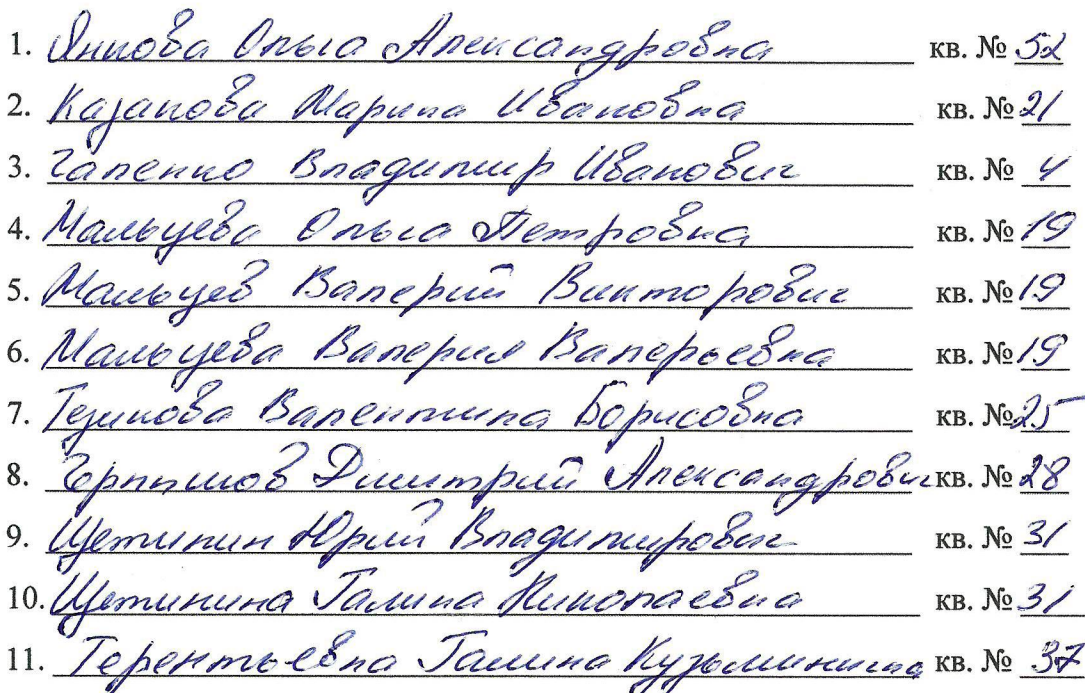 1. Яннова Ольга Александровна кв. № 52
2. Казанова Марина Ивановна кв. № 21
3. Гапенко Владимир Иванович кв. № 4
4. Мальцева Ольга Петровна кв. № 19
5. Мальцев Валерий Викторович кв. № 19
6. Мальцева Валерия Валерьевна кв. № 19
7. Тезикова Валентина Борисовна кв. № 25
8. Дмитрий Александрович кв. № 28
9. Щетинин Юрий Владимирович кв. № 31
10. Щетинина Галина Николаевна кв. № 31
11. Терентьевна Галина Кузьминична кв. № 37